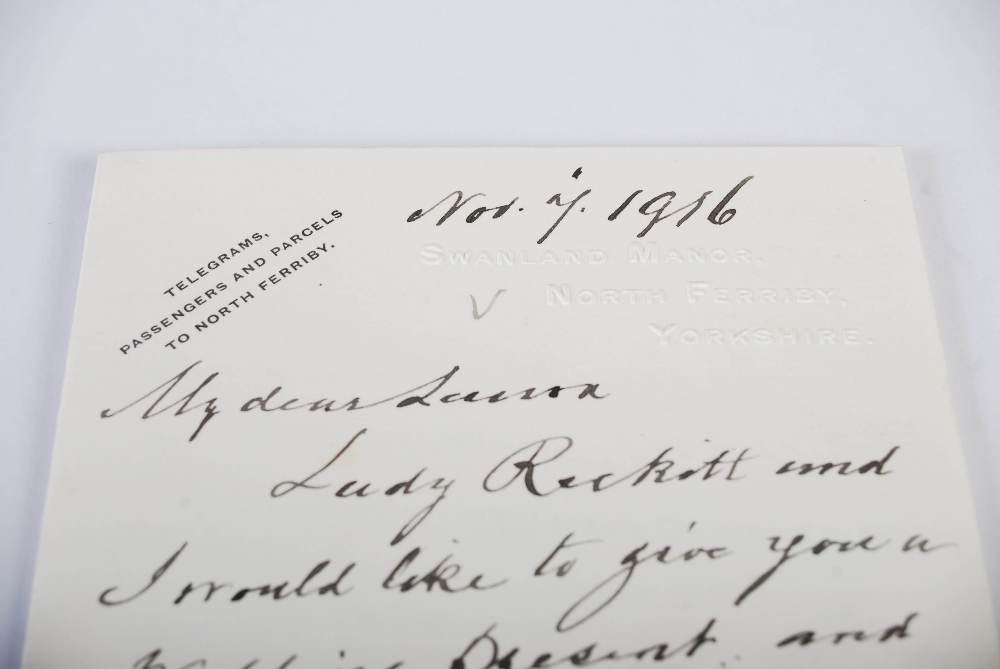 Nov. 7. 1916
TELEGRAMS,
PASSENGERS AND PARCELS
TO NORTH FERRIBY.
SWANLAND MANOR,
NORTH FERRIBY,
YORKSHIRE.
My dear
Lady Reckitt and
I would like to give you a
Present and